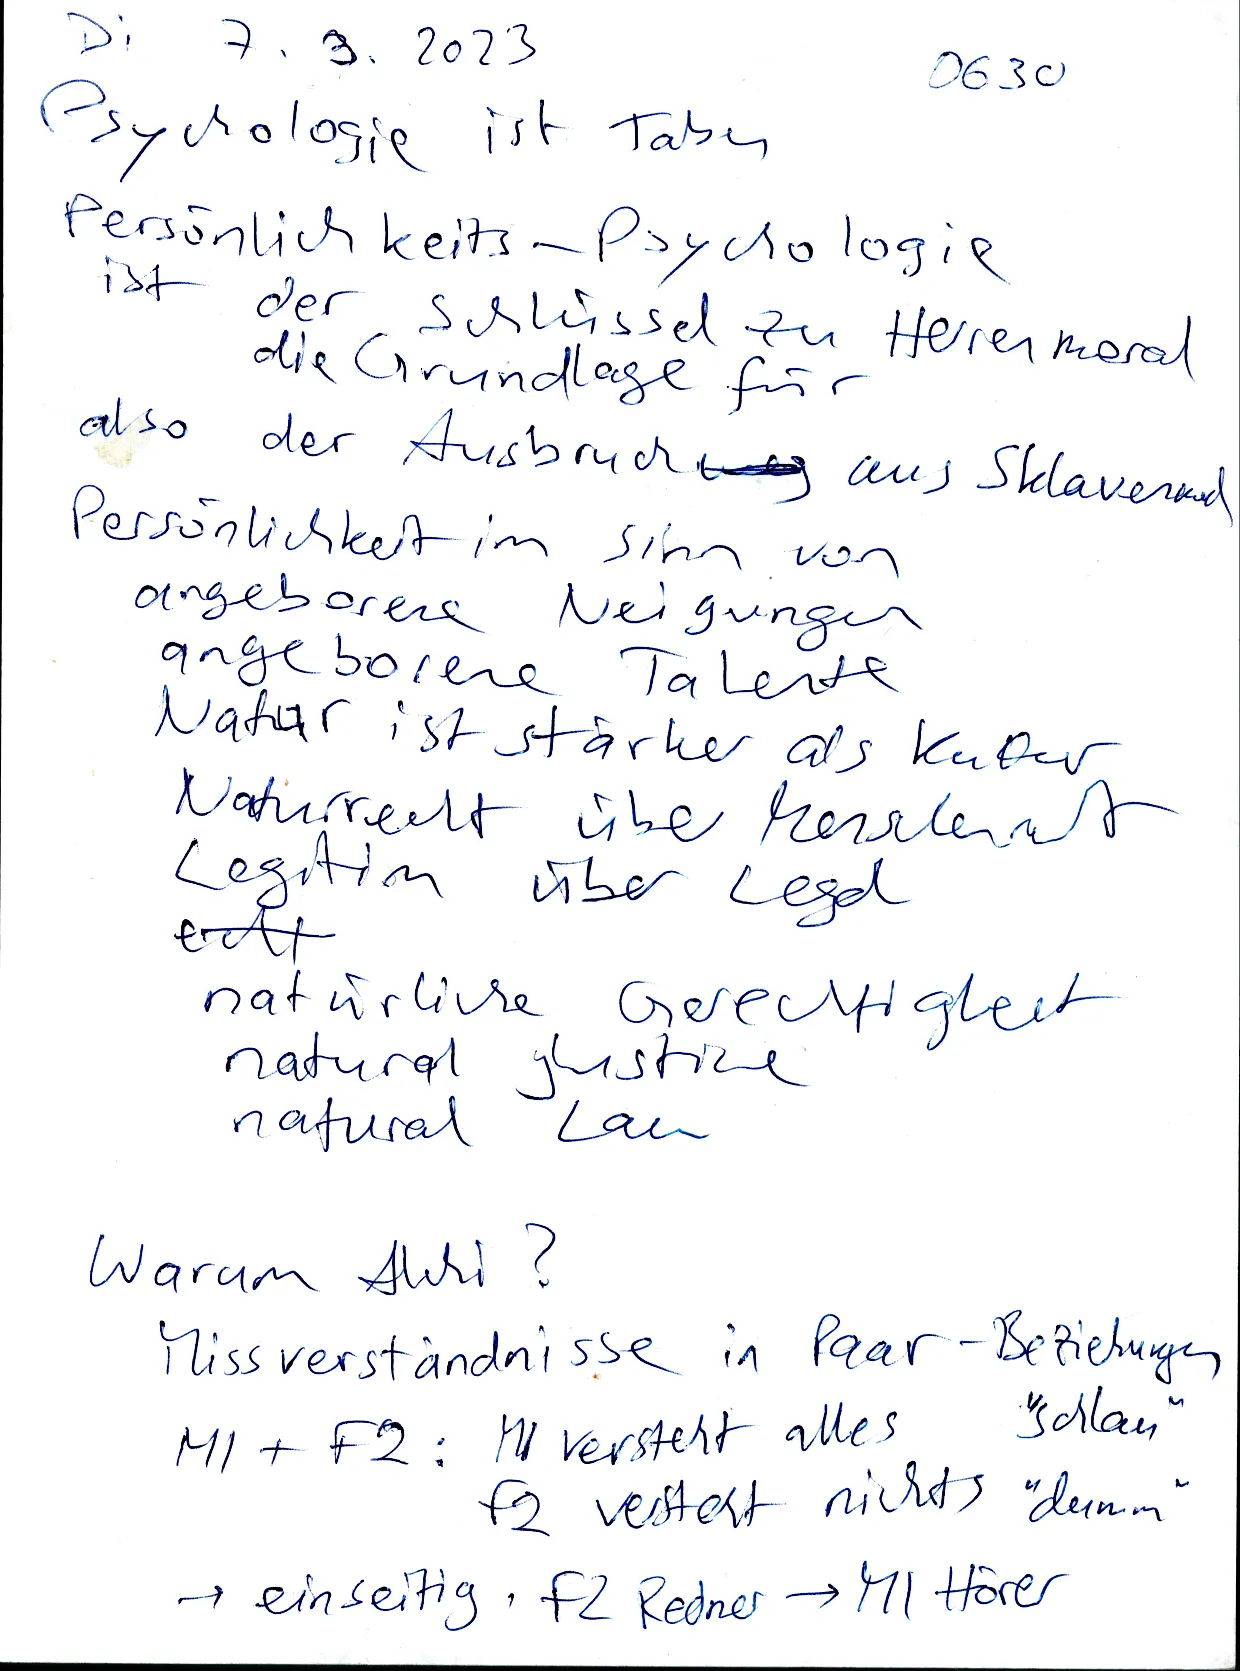 Di 7.3.2023 0630
Psychologie ist Tabu
Persönlichkeits-Psychologie
ist der Schlüssel zu Herrenmoral
die Grundlage für
also der Ausbruch aus Sklavenmoral
Persönlichkeit im Sinn von
angeborene Neigungen
angeborene Talente
Natur ist stärker als Kultur
Naturrecht über Menschenrecht
Legitim über Legal
natürliche Gerechtigkeit
natural justice
natural Law
Warum
Missverständnisse in Paar-Beziehungen
M1 + F2: M1 versteht alles "schlau"
F2 versteht nichts "dumm"
→ einseitig. F2 Redner → M1 Hörer